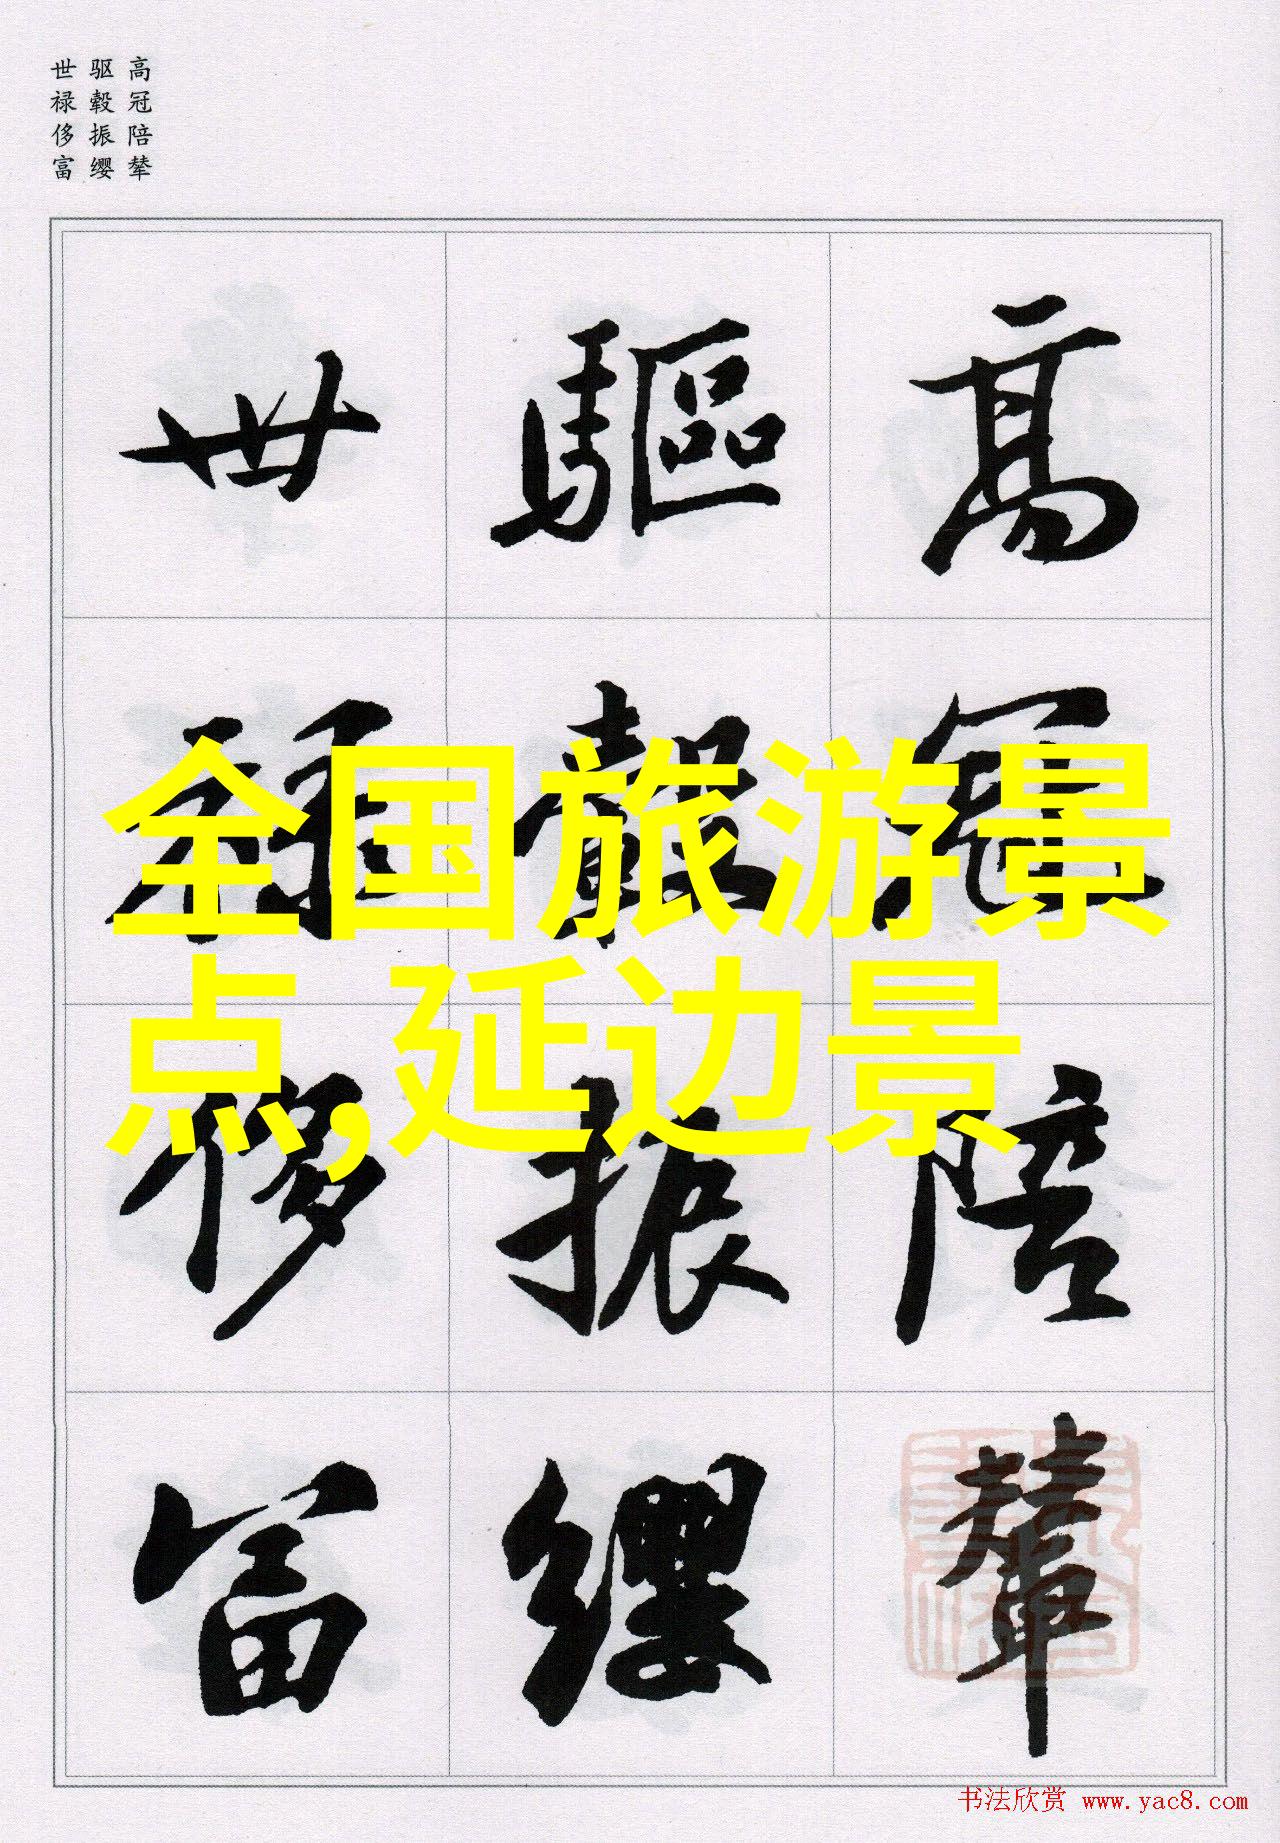 高冠陪辇
驱毂振缨
世禄侈富
高冠陪輦
驅轂振纓
世祿侈富
全国旅游景
点,延边景
书法欣赏 www.yac8.com